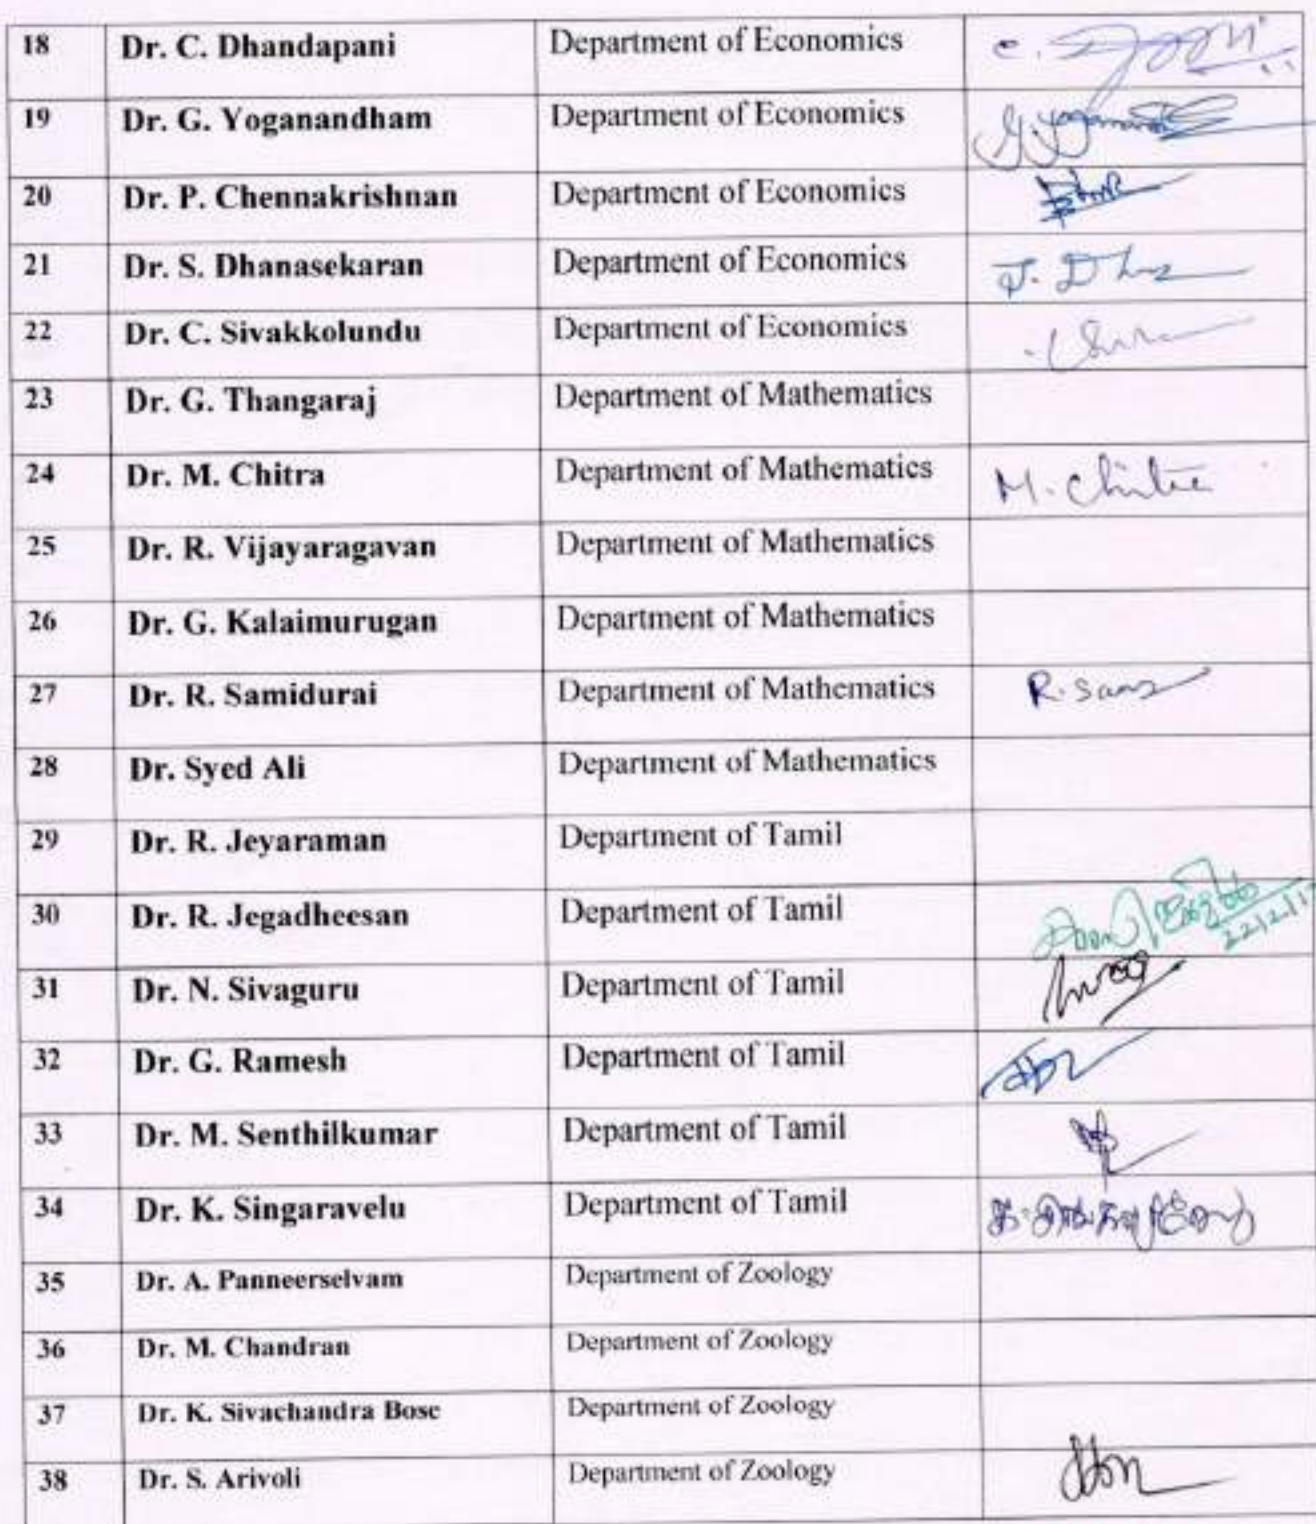 18 Dr. C. Dhandapani Department of Economics
19 Dr. G. Yoganandham Department of Economics
20 Dr. P. Chennakrishnan Department of Economics
21 Dr. S. Dhanasekaran Department of Economics
22 Dr. C. Sivakkolundu Department of Economics
23 Dr. G. Thangaraj Department of Mathematics
24 Dr. M. Chitra Department of Mathematics M. Chitra
25 Dr. R. Vijayaragavan Department of Mathematics
26 Dr. G. Kalaimurugan Department of Mathematics
27 Dr. R. Samidurai Department of Mathematics
28 Dr. Syed Ali Department of Mathematics
29 Dr. R. Jeyaraman Department of Tamil
30 Dr. R. Jegadheesan Department of Tamil
31 Dr. N. Sivaguru Department of Tamil
32 Dr. G. Ramesh Department of Tamil
33 Dr. M. Senthilkumar Department of Tamil
34 Dr. K. Singaravelu Department of Tamil
35 Dr. A. Panneerselvam Department of Zoology
36 Dr. M. Chandran Department of Zoology
37 Dr. K. Sivachandra Bose Department of Zoology
38 Dr. S. Arivoli Department of Zoology